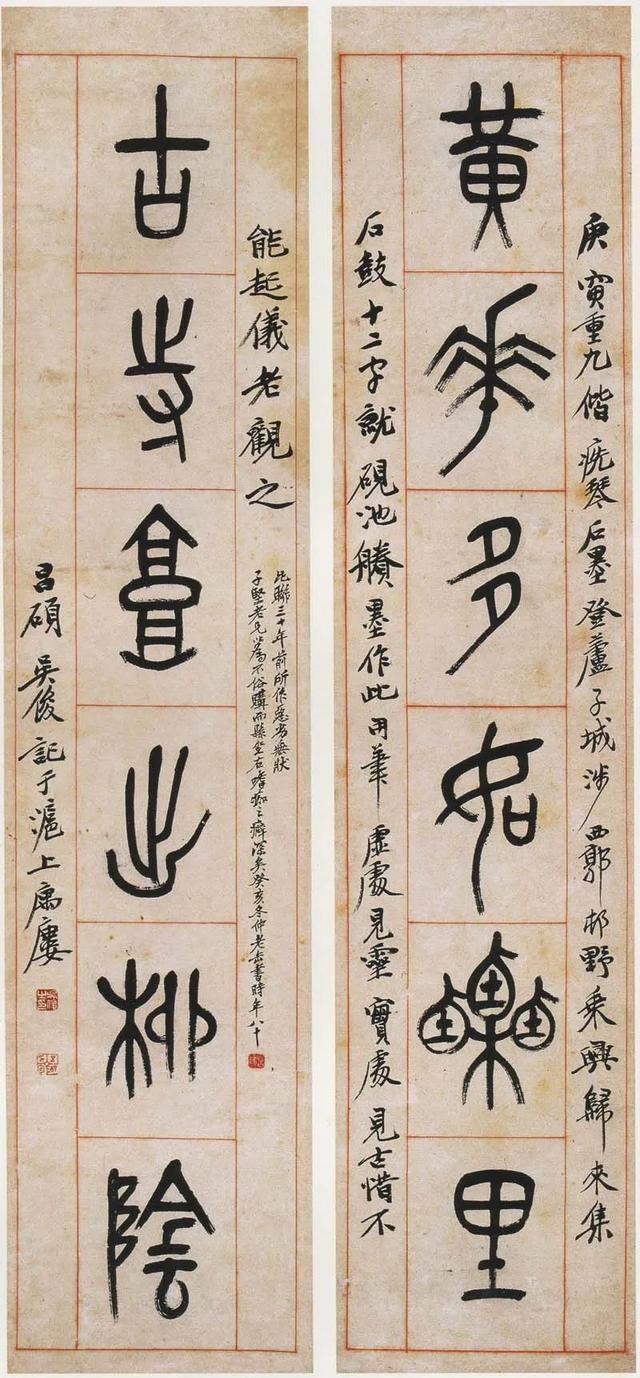 黃華多如栗里
庚寅重九偕疣琴石墨登蘆子城涉西郭邨野乘興歸來集
石鼓十二字就硯池賸墨作此用筆虛處見靈實處見古惜不
古寺出柳陰
能起儀老觀之
此聯三十年前所作惡劣無狀
子堅老兄以為不俗購而縣坐右嗜痂之癖深矣癸亥冬仲老缶書時年八十
昌碩吳俊記于滬上寓廔